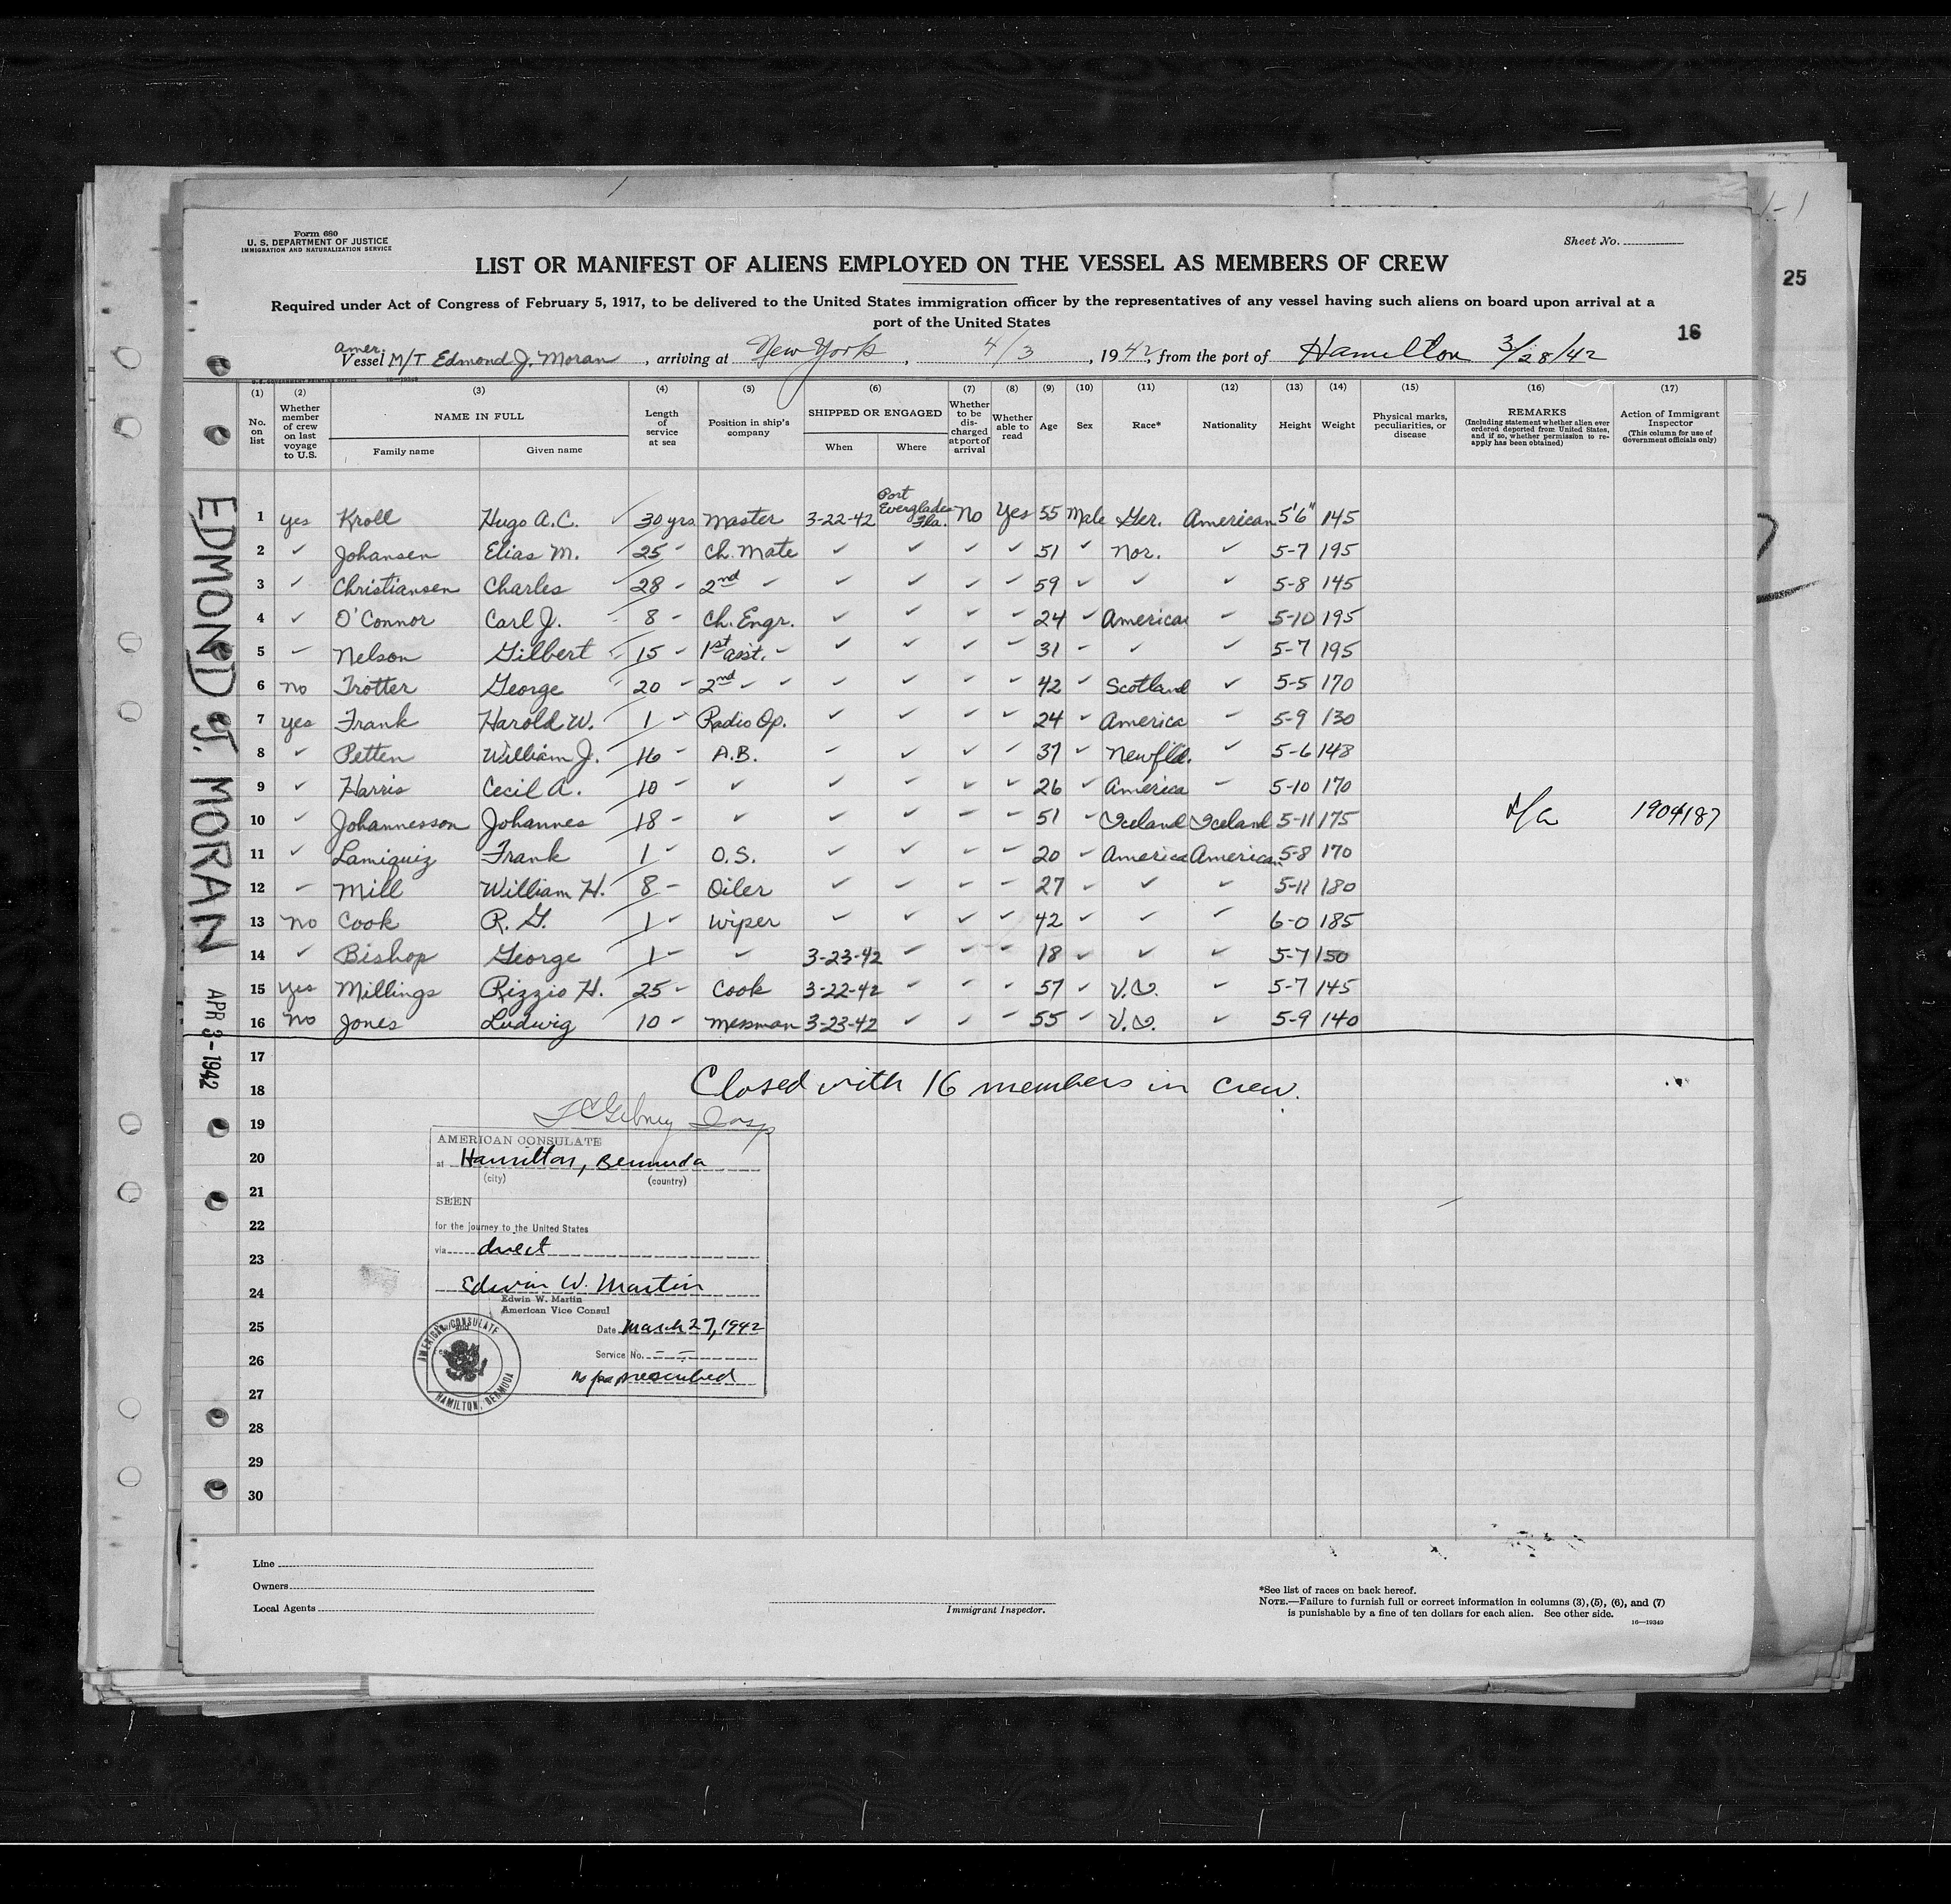 Form 680
U. S. DEPARTMENT OF JUSTICE
IMMIGRATION AND NATURALIZATION SERVICE
Sheet No.
LIST OR MANIFEST OF ALIENS EMPLOYED ON THE VESSEL AS MEMBERS OF CREW
25
Required under Act of Congress of February 5, 1917, to be delivered to the United States immigration officer by the representatives of any vessel having such aliens on board upon arrival at a
port of the United States
16
Amer.
Vessel M/T Edmond J. Moran, arriving at New York, 4/3, 1942, from the port of Hamilton 3/28/42
U.S. GOVERNMENT PRINTING OFFICE 16—19349
(1) (2) (3) (4) (5) (6) (7) (8) (9) (10) (11) (12) (13) (14) (15) (16) (17)
No. on list
Whether member of crew on last voyage to U.S.
NAME IN FULL
Family name
Given name
Length of service at sea
Position in ship's company
SHIPPED OR ENGAGED
When
Where
Whether to be discharged at port of arrival
Whether able to read
Age
Sex
Race*
Nationality
Height
Weight
Physical marks, peculiarities, or disease
REMARKS
(Including statement whether alien ever ordered deported from United States, and if so, whether permission to re-apply has been obtained)
Action of Immigrant Inspector
(This column for use of Government officials only)
1 yes Kroll Hugo A.C. ✓ 30 yrs Master 3-22-42 Port Everglades Fla. No Yes 55 Male Ger. American 5'6" 145
2 ✓ Johansen Elias M. 25 - Ch. Mate ✓ ✓ ✓ ✓ 51 ✓ Nor. ✓ 5-7 195
3 ✓ Christiansen Charles 28 - 2nd ✓ ✓ ✓ ✓ ✓ 59 ✓ ✓ ✓ 5-8 145
4 ✓ O'Connor Carl J. 8 - Ch. Engr. ✓ ✓ ✓ ✓ 24 ✓ America ✓ 5-10 195
5 ✓ Nelson Gilbert 15 - 1st asst. ✓ ✓ ✓ ✓ ✓ 31 ✓ ✓ ✓ 5-7 195
6 no Trotter George 20 - 2nd ✓ ✓ ✓ ✓ ✓ ✓ 42 ✓ Scotland ✓ 5-5 170
7 yes Frank Harold W. 1 - Radio Op. ✓ ✓ ✓ ✓ 24 ✓ America ✓ 5-9 130
8 ✓ Petten William J. 16 - A.B. ✓ ✓ ✓ ✓ 37 ✓ Newfld. ✓ 5-6 148
9 ✓ Harris Cecil A. 10 - ✓ ✓ ✓ ✓ ✓ 26 ✓ America ✓ 5-10 170
10 ✓ Johannesson Johannes 18 - ✓ ✓ ✓ ✓ ✓ 51 ✓ Iceland Iceland 5-11 175 1904187
11 ✓ Lamiquiz Frank 1 - O.S. ✓ ✓ ✓ ✓ 20 ✓ America American 5-8 170
12 ✓ Mill William H. 8 - Oiler ✓ ✓ ✓ ✓ 27 ✓ ✓ ✓ 5-11 180
13 No Cook R. G. 1 - Wiper ✓ ✓ ✓ ✓ 42 ✓ ✓ ✓ 6-0 185
14 ✓ Bishop George 1 - ✓ 3-23-42 ✓ ✓ ✓ 18 ✓ ✓ ✓ 5-7 150
15 Yes Millings Rizzio H. 25 - Cook 3-22-42 ✓ ✓ ✓ 57 ✓ V.I. ✓ 5-7 145
16 No Jones Ludwig 10 - Messman 3-23-42 ✓ ✓ ✓ 55 ✓ V.I. ✓ 5-9 140
17
18 Closed with 16 members in crew.
19 Gibney Insp
AMERICAN CONSULATE
20 at Hamilton, Bermuda
(city) (country)
21 SEEN
22 for the journey to the United States
23 via direct
24 Edwin W. Martin
Edwin W. Martin
American Vice Consul
25 Date March 27, 1942
26 Service No. - -
27 No fee prescribed
AMERICAN CONSULATE
HAMILTON, BERMUDA
28
29
30
EDMOND J. MORAN APR 3 - 1942
Line
Owners
Local Agents
Immigrant Inspector.
*See list of races on back hereof.
NOTE.—Failure to furnish full or correct information in columns (3), (5), (6), and (7)
is punishable by a fine of ten dollars for each alien. See other side.
16—19349